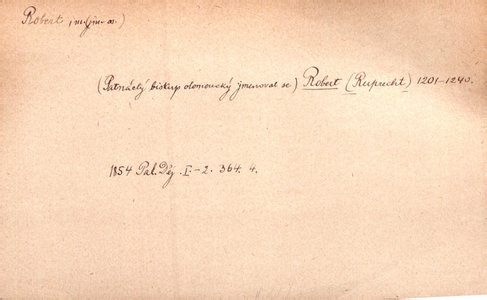 Robert, m. (jm. os.)
(Patnáctý biskup olomoucký jmenoval se) Robert (Ruprecht) 1201–1240.
1854 Pal. Děj. I.–2. 364. 4.